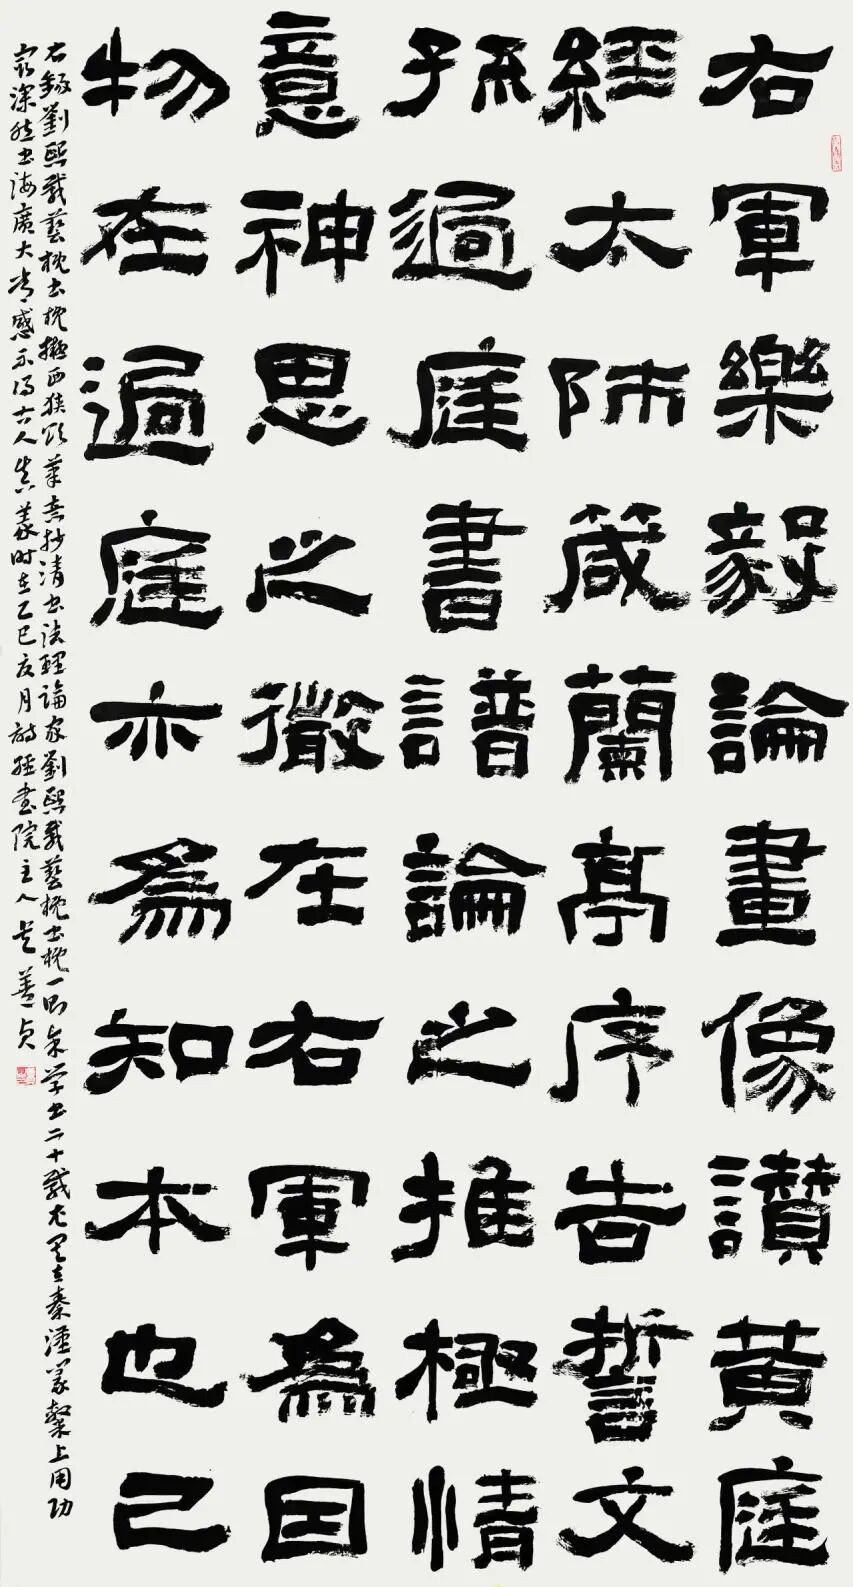 右軍樂毅論畫像讃黃庭
經太師箴蘭亭序告誓文
孫過庭書譜論之推極情
意神思之微在右軍為因
物在過庭亦為知本也已
右錄劉熙載藝概書概擬西狹頌筆意抄清書法理論家劉熙載藝概書概一則余学書二十載尤在秦漢篆隸上用功
最深然書海廣大常感不得古人真義时在乙巳夏月書院主人吴善贞